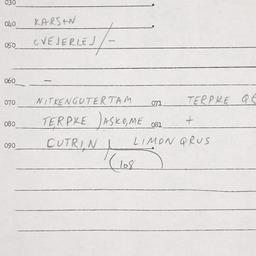 030
040 KARSTN
050 EVEJERLEJ/-
060 -
070 NITKENGUTERTAM 071 TERPKE
080 TERPKE JASKOME 081 +
090 CUTRIN / LIMON QRUS
(108)